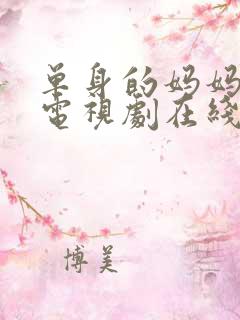 单身的妈妈
電視劇在綫
博美